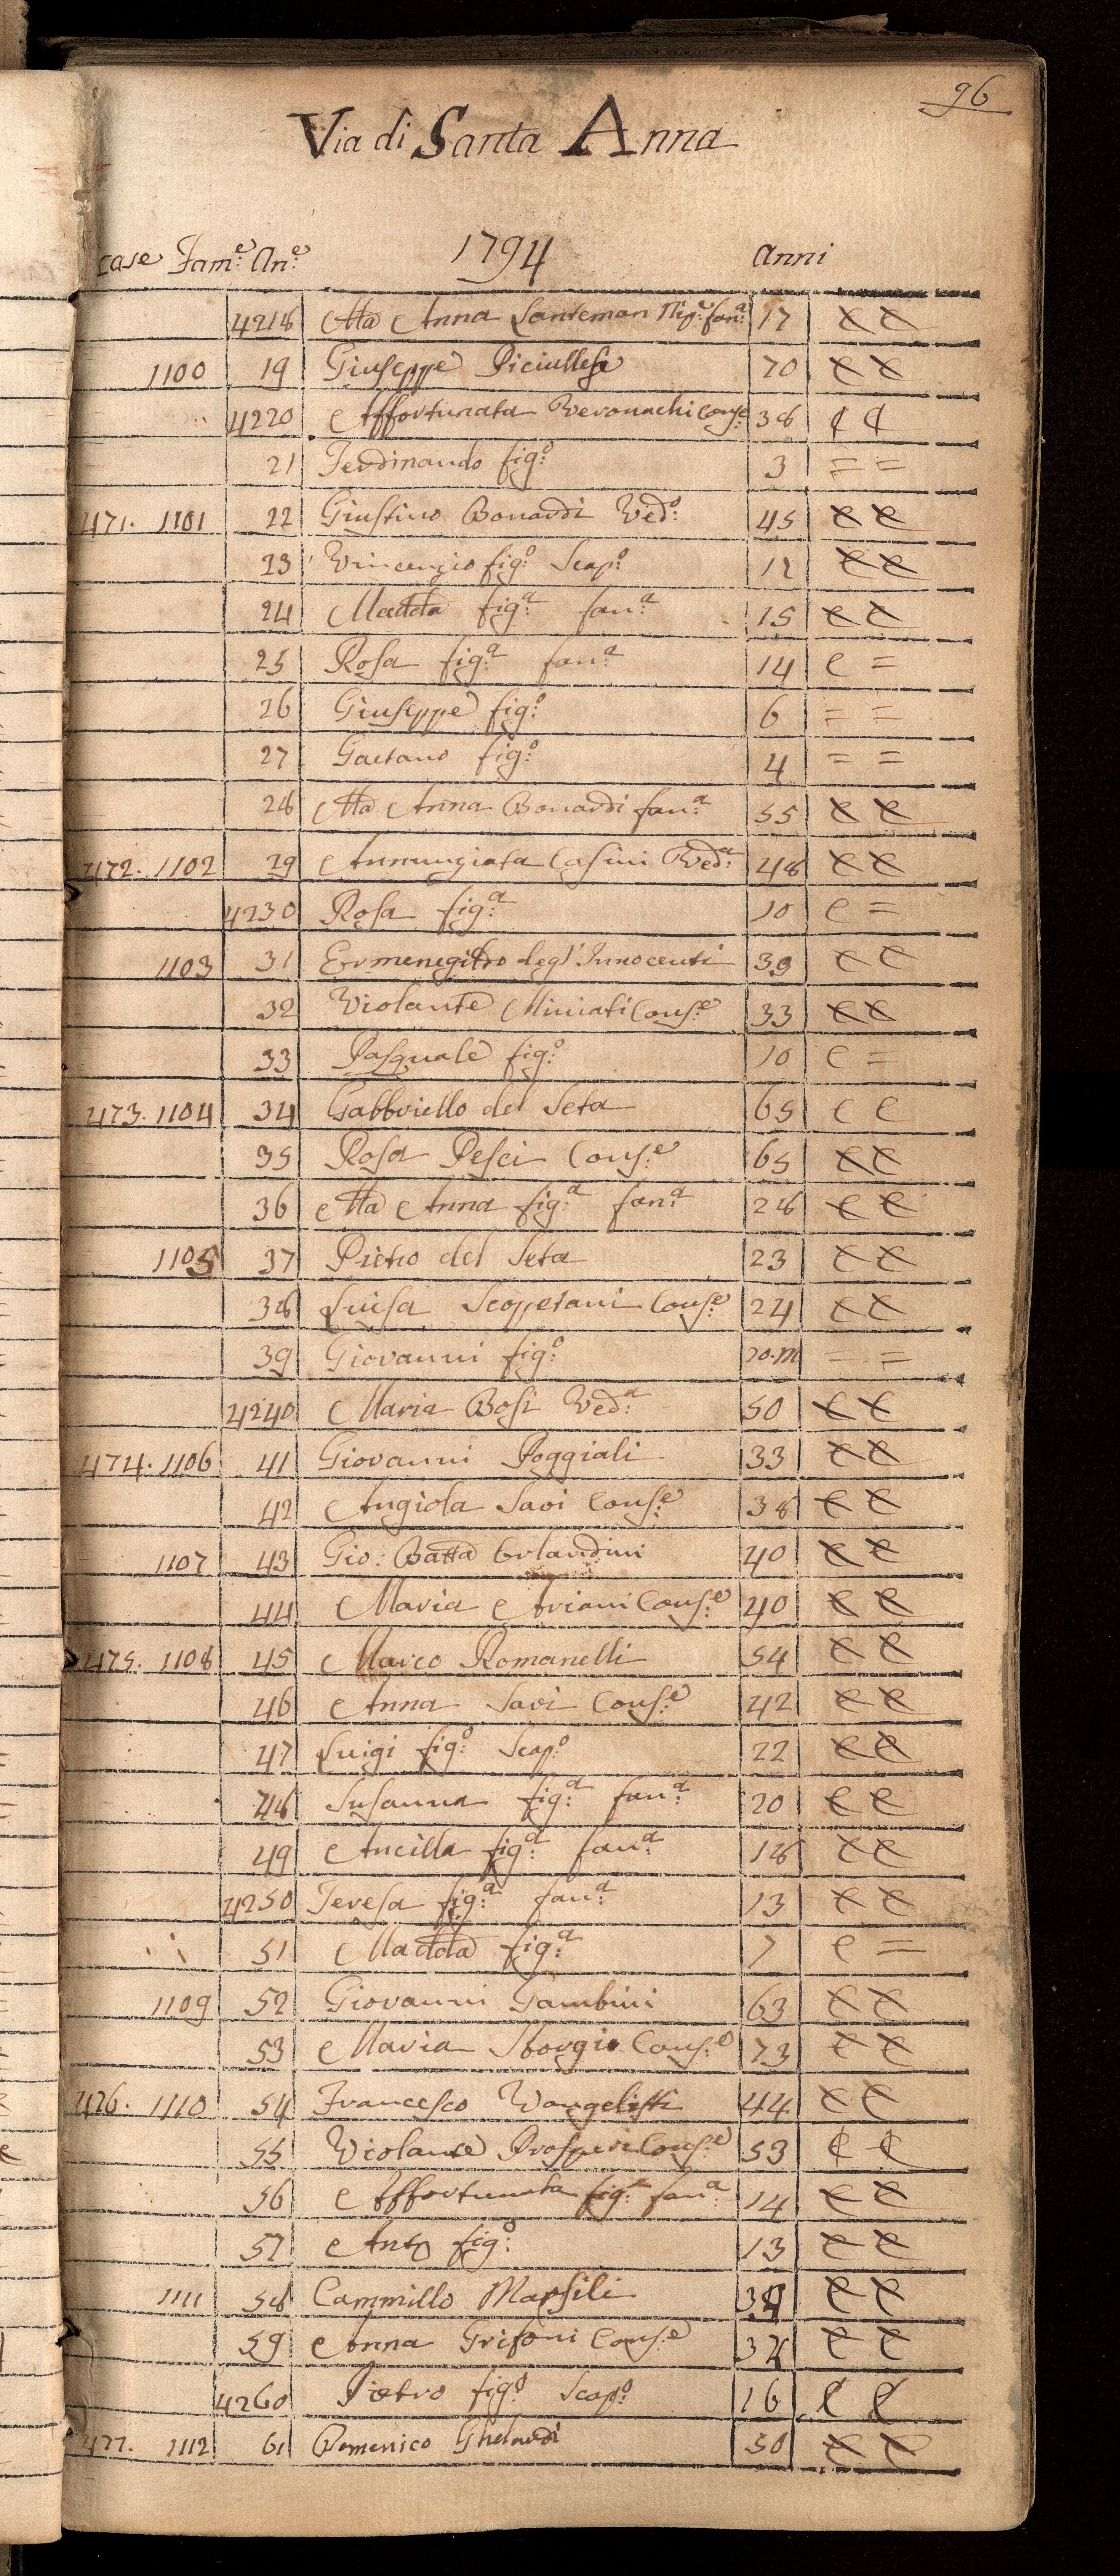 96
Via di Santa Anna
case Fam:e An:e 1794 Anni
4218 Ma Anna Santeman Nip:e fan:a 17
1100 19 Giuseppe Piciullesi 70
4220 Affortunata Veronachi Cons:e 38
21 Ferdinando fig:o 3 = =
471. 1101 22 Giustino Bonardi Ved:o 45
23 Vincenzio fig:o Scap:o 12
24 Madda fig:a fan:a 15
25 Rosa fig:a fan:a 14 C =
26 Giuseppe fig:o 6 = =
27 Gaetano fig:o 4 = =
28 Ma Anna Bonardi fan:a 55
472. 1102 29 Annunziata Casini Ved:a 48
4230 Rosa fig:a 10 C =
1103 31 Ermenegildo degl'Innocenti 39
32 Violante Miniati Cons:e 33
33 Pasquale fig:o 10 C =
473. 1104 34 Gabbriello del Seta 65 C C
35 Rosa Pesci Cons:e 65
36 Ma Anna fig:a fan:a 28
1105 37 Pietro del Seta 23
38 Luisa Scoppetani Cons:e 24
39 Giovanni fig:o 20.m = =
4240 Maria Bosi Ved:a 50
474. 1106 41 Giovanni Poggiali 33
42 Angiola Savi Cons:e 38
1107 43 Gio: Batta Orlandini 40
44 Maria Ariani Cons:e 40
475. 1108 45 Marco Romanelli 54
46 Anna Savi Cons:e 42
47 Luigi fig:o Scap:o 22
48 Susanna fig:a fan:a 20
49 Ancilla fig:a fan:a 18
4250 Teresa fig:a fan:a 13
51 Madda fig:a 7 C =
1109 52 Giovanni Gambini 63
53 Maria Sborgi Cons:e 73
476. 1110 54 Francesco Vangelisti 44
55 Violante Prosperi Cons:e 53
56 Affortunata fig:a fan:a 14
57 Anto fig:o 13
1111 58 Cammillo Marsili
59 Anna Grifoni Cons:e
4260 Pietro fig:o Scap:o 16
477. 1112 61 Domenico Ghelardi 50